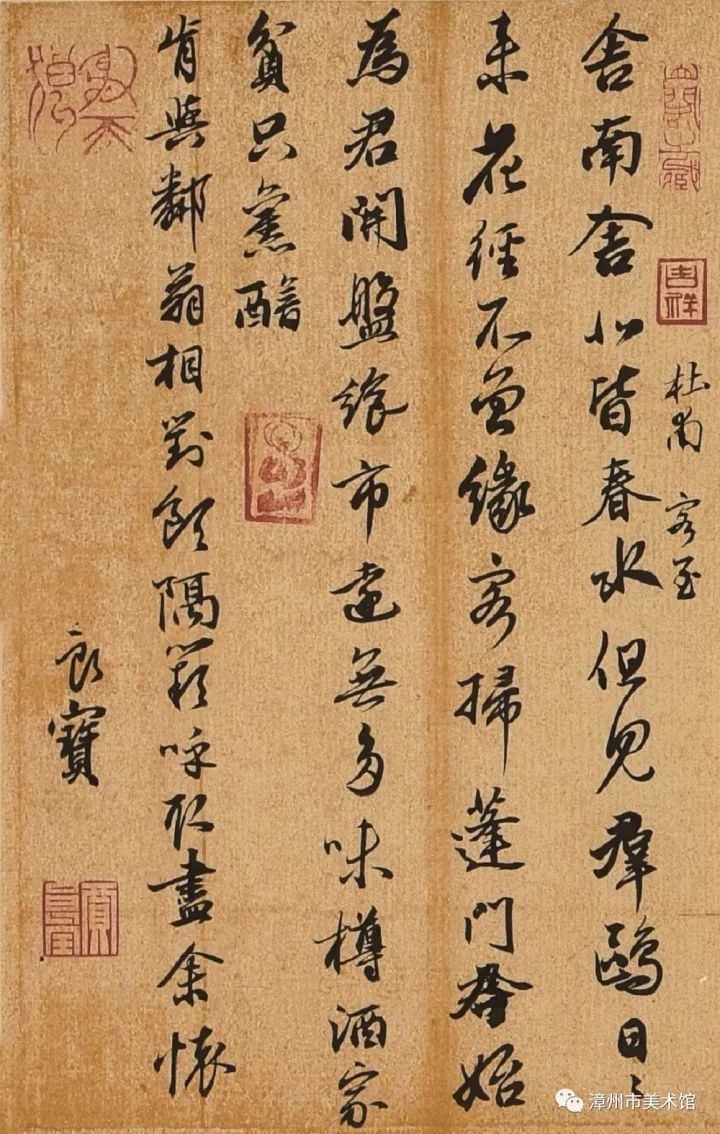 吉祥
杜甫 客至
舍南舍北皆春水但見羣鷗日々
来花徑不曾緣客掃蓬門今始
為君開盤飱市遠無多味樽酒家
貧只舊醅
肯與鄰翁相對飲隔籬呼取盡余懷
良寶
漳州市美术馆